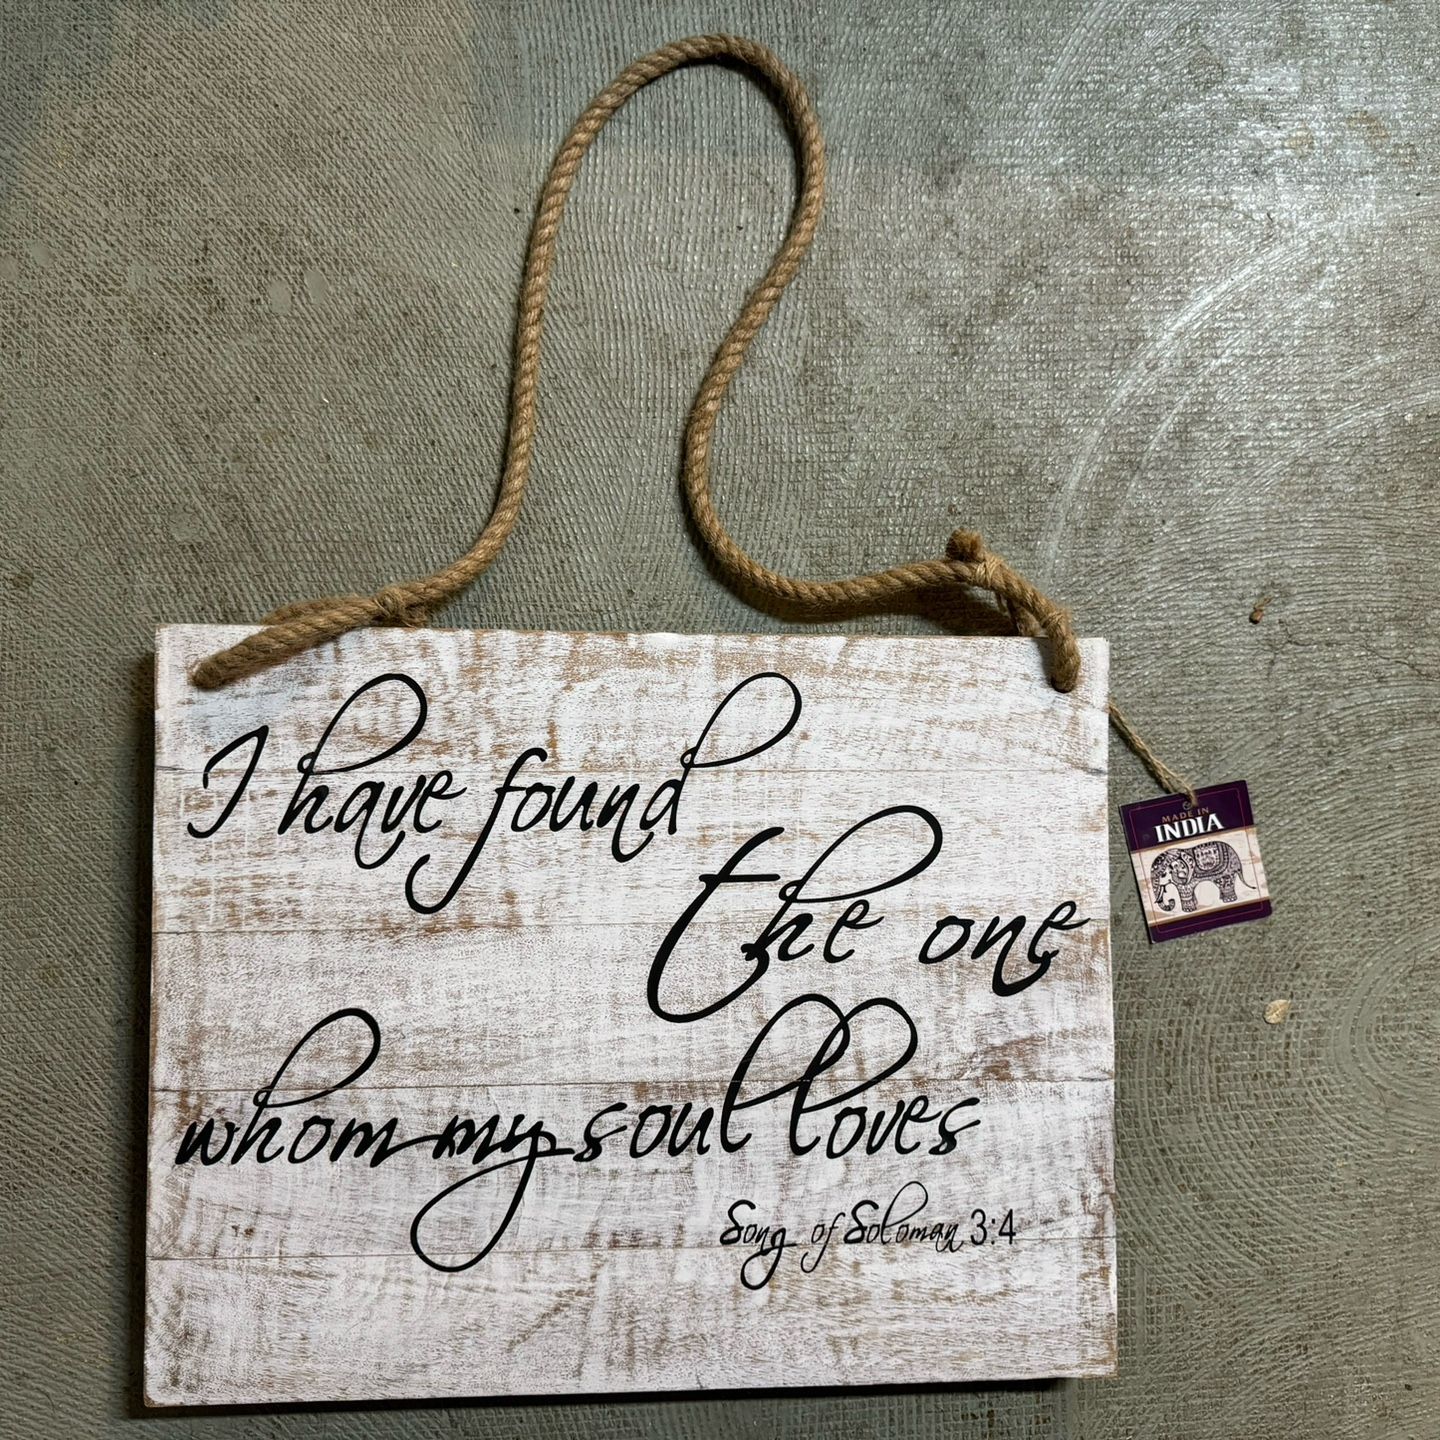 I have found
the one
whom my soul loves
Song of Soloman 3:4
MADE IN
INDIA